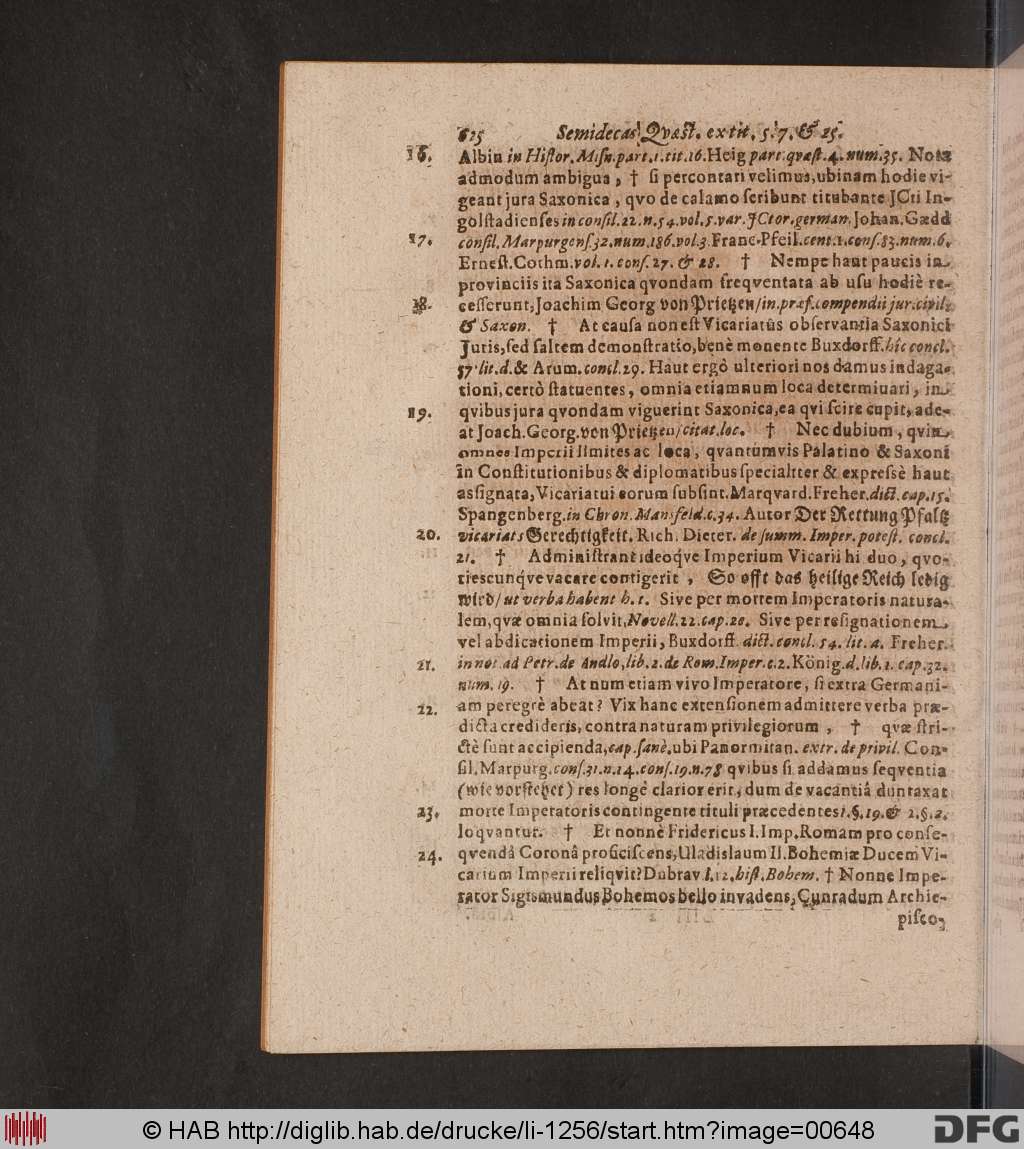 615 Semidecas Qvæst. extit. 5. 7. & 25.
16. Albin in Histor. Misn. part. 1. tit. 16. Heig part. qvæst. 4. num. 35. Nota
admodum ambigua, † si percontari velimus, ubinam hodie vi-
geant jura Saxonica, qvo de calamo scribunt titubante JCti In-
golstadienses in consil. 22. n. 54. vol. 5. var. JCtor. german. Johan. Gædd
17. consil. Marpurgens. 32. num. 186. vol. 3. Franc. Pfeil. cent. 1. cons. 83. num. 6.
Ernest. Cothm. vol. 1. cons. 27. & 28. † Nempe haut paucis in
provinciis ita Saxonica qvondam freqventata ab usu hodiè re-
18. cesserunt, Joachim Georg von Prietzen/ in præf. compendii jur. civil.
& Saxon. † At causa non est Vicariatûs observantia Saxonici
Juris, sed saltem demonstratio, benè monente Buxdorff. hîc concl.
57 lit. d. & Arum. concl. 29. Haut ergò ulteriori nos damus indaga-
tioni, certò statuentes, omnia etiamnum loca determinari, in
19. qvibus jura qvondam viguerint Saxonica, ea qvi scire cupit, ade-
at Joach. Georg. von Prietzen/ citat. loc. † Nec dubium, qvin
omnes Imperii limites ac loca, qvantumvis Palatino & Saxoni
in Constitutionibus & diplomatibus specialiter & expressè haut
assignata, Vicariatui eorum subsint. Marqvard. Freher. dict. cap. 15.
Spangenberg. in Chron. Mansfeld. c. 34. Autor Der Rettung Pfaltz
20. vicariats Gerechtigkeit. Rich. Dieter. de summ. Imper. potest. concl.
21. † Administrant ideoqve Imperium Vicarii hi duo, qvo-
tiescunqve vacare contigerit, So offt das heilige Reich ledig
wird/ ut verba habent h. t. Sive per mortem Imperatoris natura-
lem, qvæ omnia solvit, Novell. 22. cap. 20. Sive per resignationem
vel abdicationem Imperii, Buxdorff. dict. concl. 54. lit. a. Freher.
21. in not. ad Petr. de Andlo, lib. 2. de Rom. Imper. c. 2. König. d. lib. 1. cap. 32.
num. 19. † At num etiam vivo Imperatore, si extra Germani-
22. am peregrè abeat? Vix hanc extensionem admittere verba præ-
dicta credideris, contra naturam privilegiorum, † qvæ stri-
ctè sunt accipienda, cap. sanè, ubi Panormitan. extr. de privil. Con-
sil. Marpurg. cons. 31. n. 14. cons. 19. n. 78 qvibus si addamus seqventia
(wie vorstehet) res longè clarior erit, dum de vacantiâ duntaxat
23. morte Imperatoris contingente tituli præcedentes 1. §. 19. & 2. §. 2.
loqvantur. † Et nonnè Fridericus I. Imp. Romam pro conse-
24. qvendâ Coronâ proficiscens, Uladislaum II. Bohemiæ Ducem Vi-
carium Imperii reliqvit? Dubrav l. 12. hist. Bohem. † Nonne Impe-
rator Sigismundus Bohemos bello invadens, Cunradum Archie-
pisco-
© HAB http://diglib.hab.de/drucke/li-1256/start.htm?image=00648
DFG